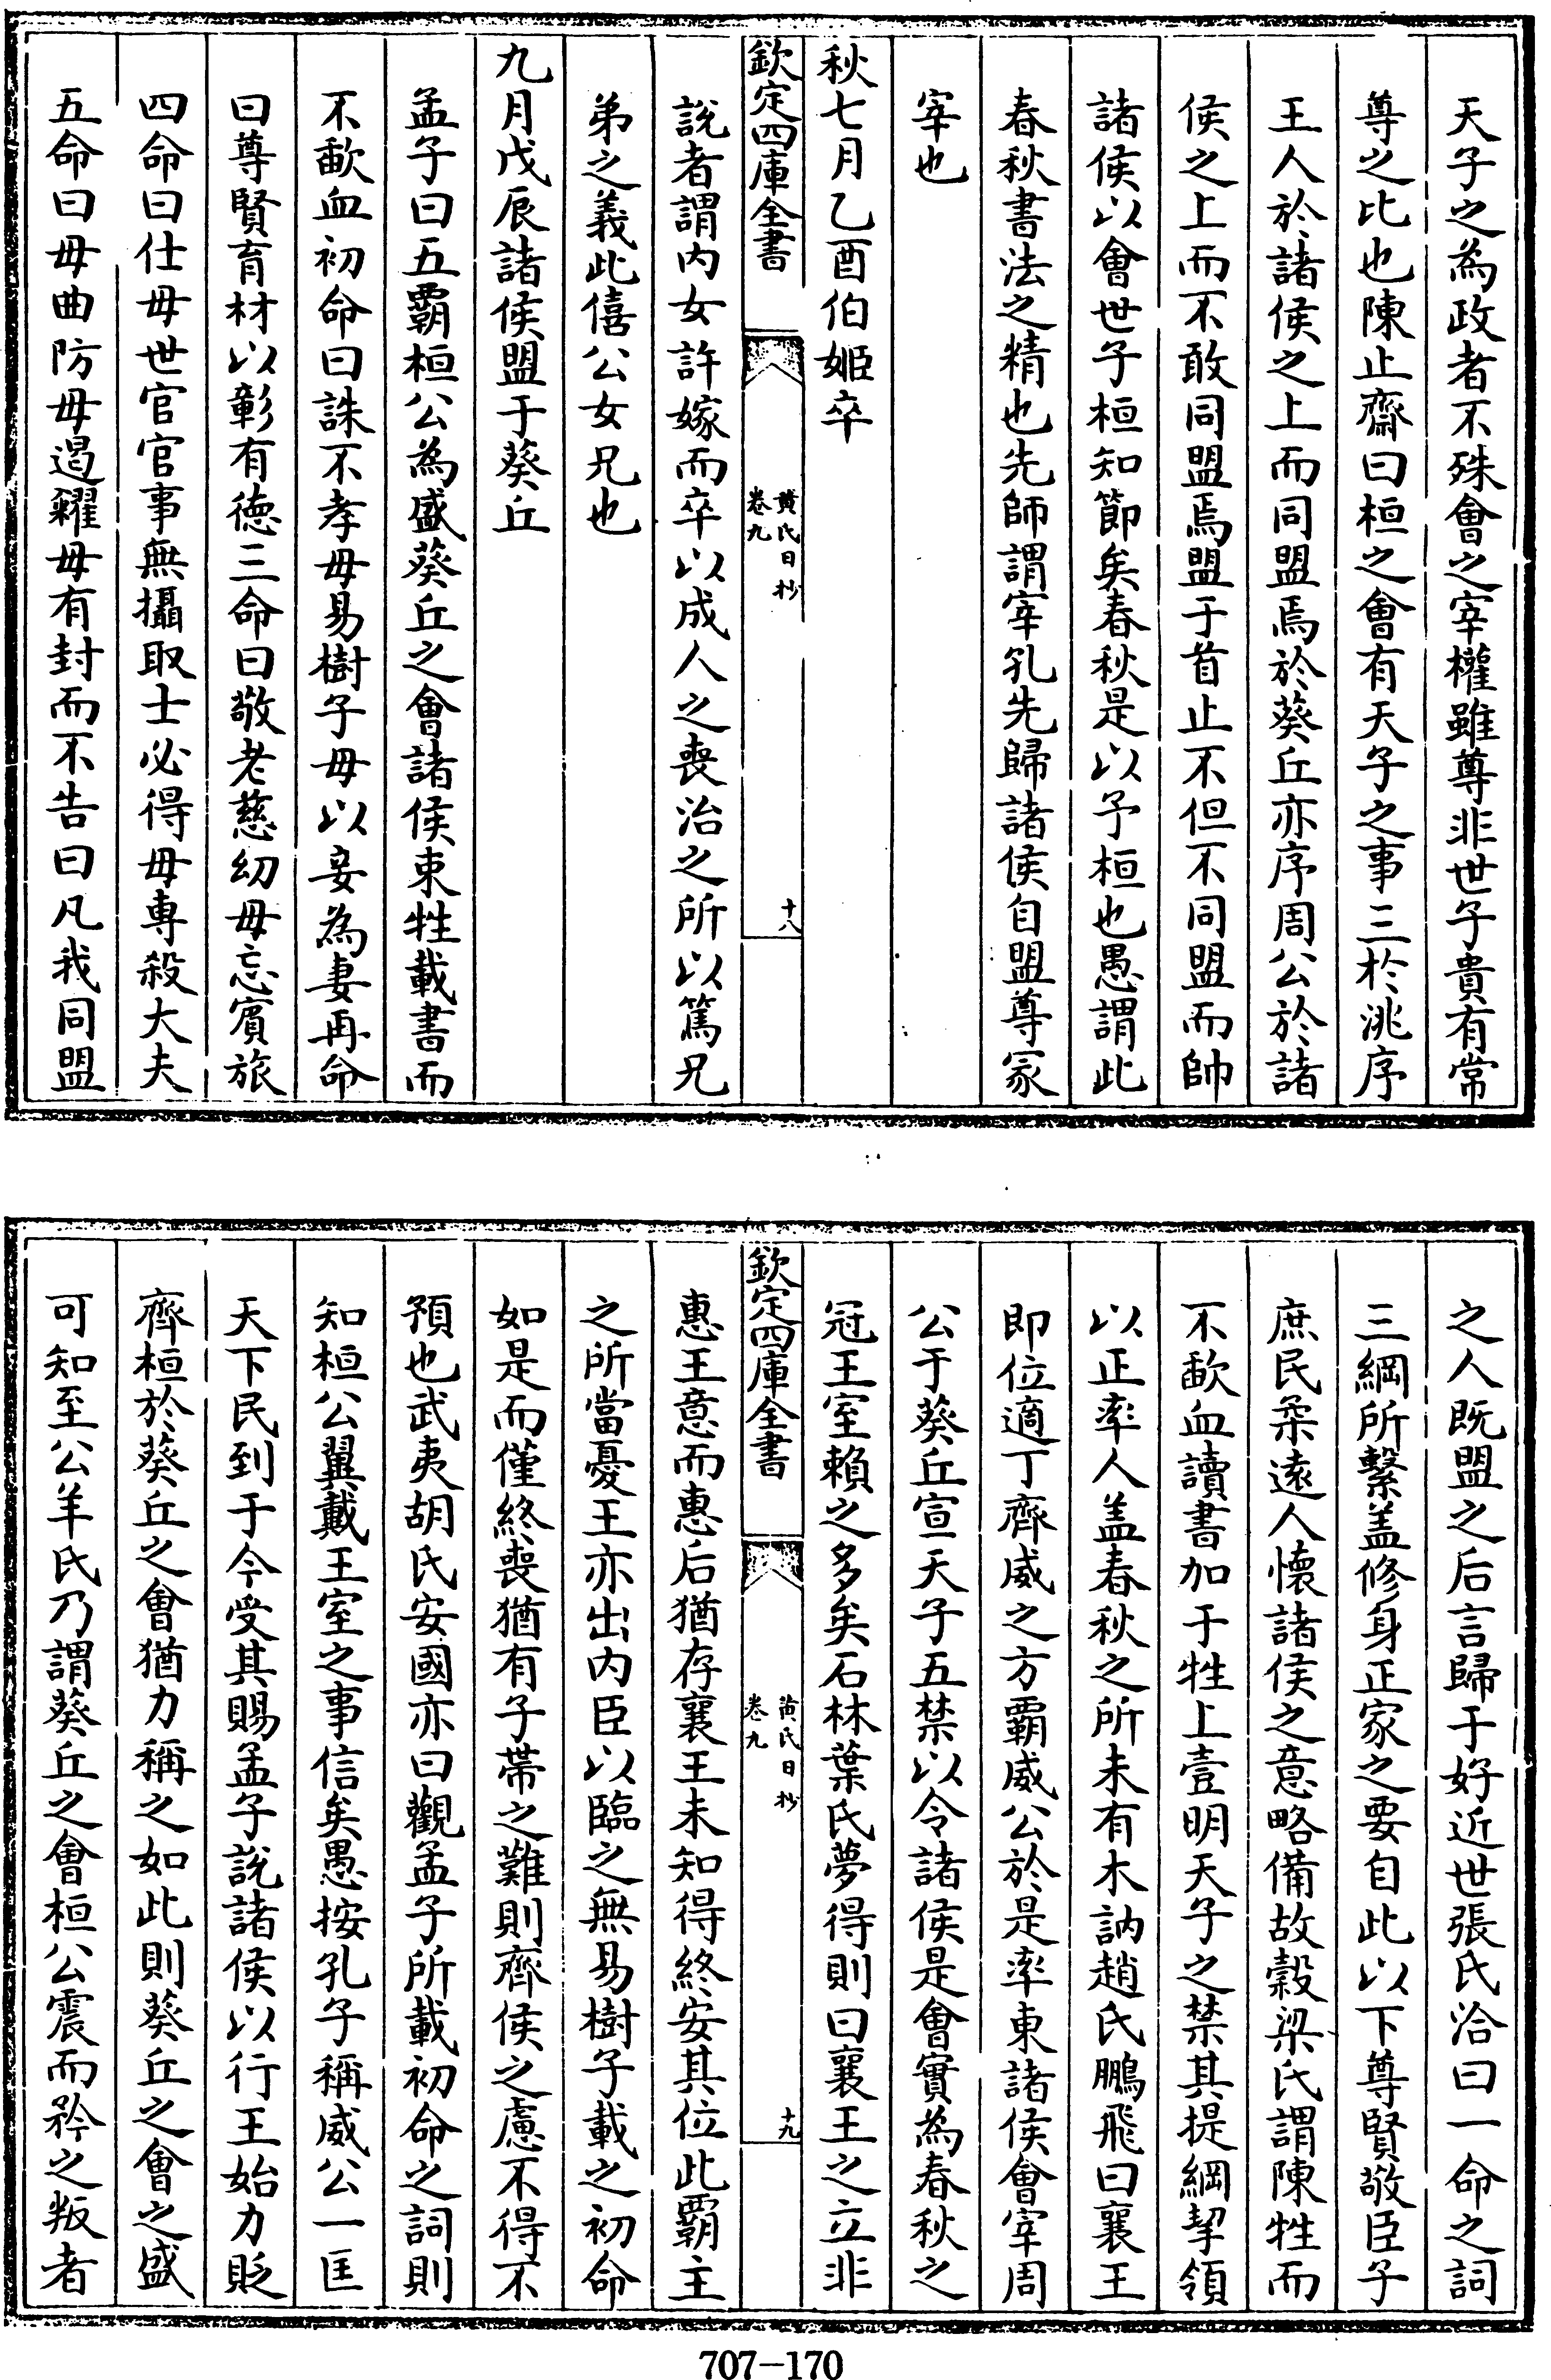 天子之為政者不殊會之宰權雖尊非世子貴有常
尊之比也陳止齋曰桓之會有天子之事三於洮序
王人於諸侯之上而同盟焉於葵丘亦序周公於諸
侯之上而不敢同盟焉盟于首止不但不同盟而帥
諸侯以會世子桓知節矣春秋是以予桓也愚謂此
春秋書法之精也先師謂宰孔先歸諸侯自盟尊冢
宰也
秋七月乙酉伯姬卒
欽定四庫全書
黃氏日抄
卷九
十八
說者謂内女許嫁而卒以成人之喪治之所以篤兄
弟之義此僖公女兄也
九月戊辰諸侯盟于葵丘
孟子曰五霸桓公為盛葵丘之會諸侯束牲載書而
不歃血初命曰誅不孝毋易樹子毋以妾為妻再命
曰尊賢育材以彰有德三命曰敬老慈幼毋忘賓旅
四命曰仕毋世官官事無攝取士必得毋專殺大夫
五命曰毋曲防毋遏糴毋有封而不告曰凡我同盟
之人既盟之后言歸于好近世張氏洽曰一命之詞
三綱所繫盖修身正家之要自此以下尊賢敬臣子
庶民柔遠人懷諸侯之意略備故榖梁氏謂陳牲而
不歃血讀書加于牲上壹明天子之禁其提綱挈領
以正率人盖春秋之所未有木訥趙氏鵬飛曰襄王
即位適丁齊威之方霸威公於是率東諸侯會宰周
公于葵丘宣天子五禁以令諸侯是會實為春秋之
冠王室賴之多矣石林葉氏夢得則曰襄王之立非
欽定四庫全書
黃氏日抄
卷九
十九
惠王意而惠后猶存襄王未知得終安其位此霸主
之所當憂王亦出内臣以臨之無易樹子載之初命
如是而僅終喪猶有子帶之難則齊侯之慮不得不
預也武夷胡氏安國亦曰觀孟子所載初命之詞則
知桓公翼戴王室之事信矣愚按孔子稱威公一匡
天下民到于今受其賜孟子說諸侯以行王始力貶
齊桓於葵丘之會猶力稱之如此則葵丘之會之盛
可知至公羊氏乃謂葵丘之會桓公震而矜之叛者
707-170